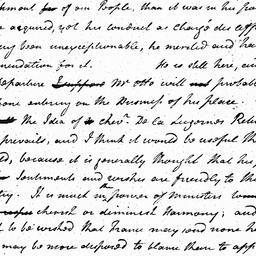 of our People, than it was in his po
acquired, yet his conduct as chargé des aff
been unexceptionable, he merited and ha
mendation for it. He is still here, and
Departure I suppose Mr Otto will not probabl
entering on the Business of his place.
the Idea of chevr. De la Luzernes Retu
prevails, and I think it would be useful th
because it is generally thought that his
Sentiments and wishes are friendly to the
try. It is much in power of ministers
cherish or diminish Harmony; and
to be wished that France may send none he
may be more disposed to blame than to app